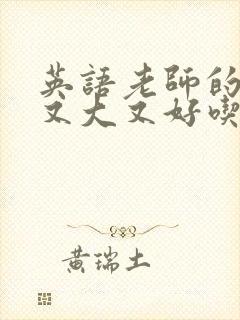 英語老師的
又大又好喫
黃瑞土